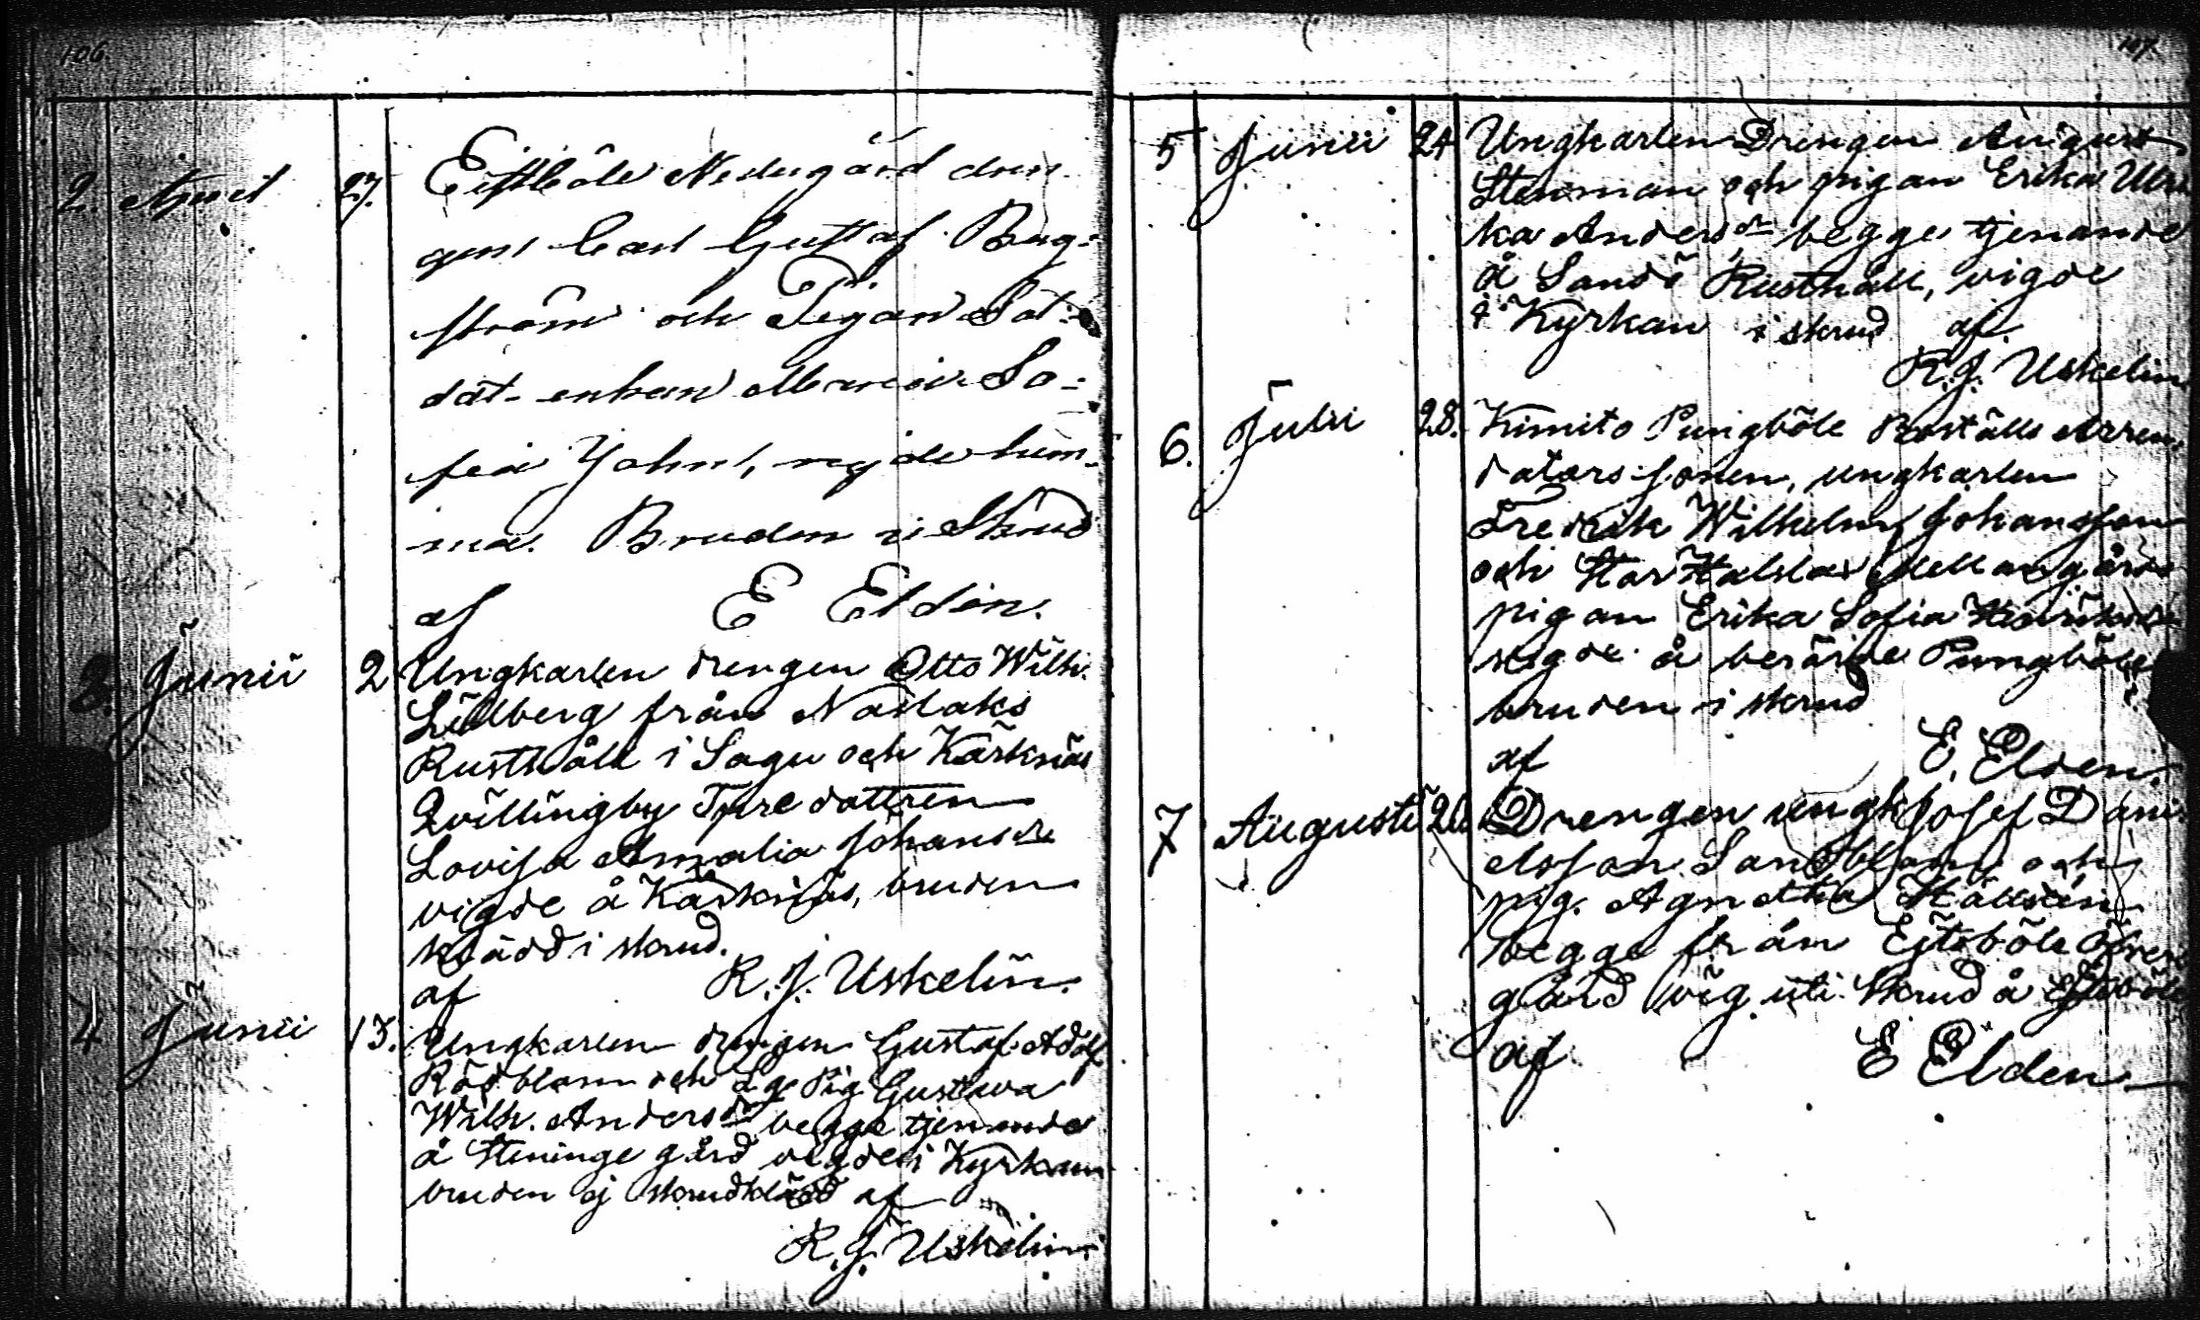 106
2. April 27. Eistböle Nedergård dren
gen Carl Gustaf Berg=
ström och Pigan Sol=
dat-enkan Maria So=
fia Johns, vigde hem=
ma. Bruden i Skrud
af E Eldén.
3. Junii 2 Ungkarlen drengen Otto Wilh.
Lilberg från Naslaks
Rusthåll i Sagu och Kärknäs
Qvillingby Torredottren
Lovisa Amalia Johansdr
vigde å Kärknäs, bruden
klädd i skrud.
af R. J. Uskelin.
4 Junii 13. Ungkarlen drengen Gustaf Adolf
Rödblom och Pig Gustava
Wilh. Andersdr begge tjenande
å Steninge gård vigde i Kyrkan
bruden ej skrudklädd af
R. J. Uskelin
107.
5 Junii 24 Ungkarlen Drengen August
Stenman och pigan Erika Ulri
ka Andersdr begge tjenande
å Sandö Rusthåll, vigde
i Kyrkan i skrud af.
R. J. Uskelin
6. Julii 28. Kimito Pungböle Boställs Arren
dators sonen, ungkarlen
Fredrik Wilhelm Johansson
och Stor Halslax Mellangårds
pigan Erika Sofia Henriksdr
vigde å berörde Pungböle
bruden i skrud
af E. Elden.
7 Augusti 26 Drengen ungk Josef Dani
elsson Sandblom och
pig. Agnetha Hällsten
begge från Ejstböle Öfver
gård vig. uti Skrud å Ejstböle
af E Elden